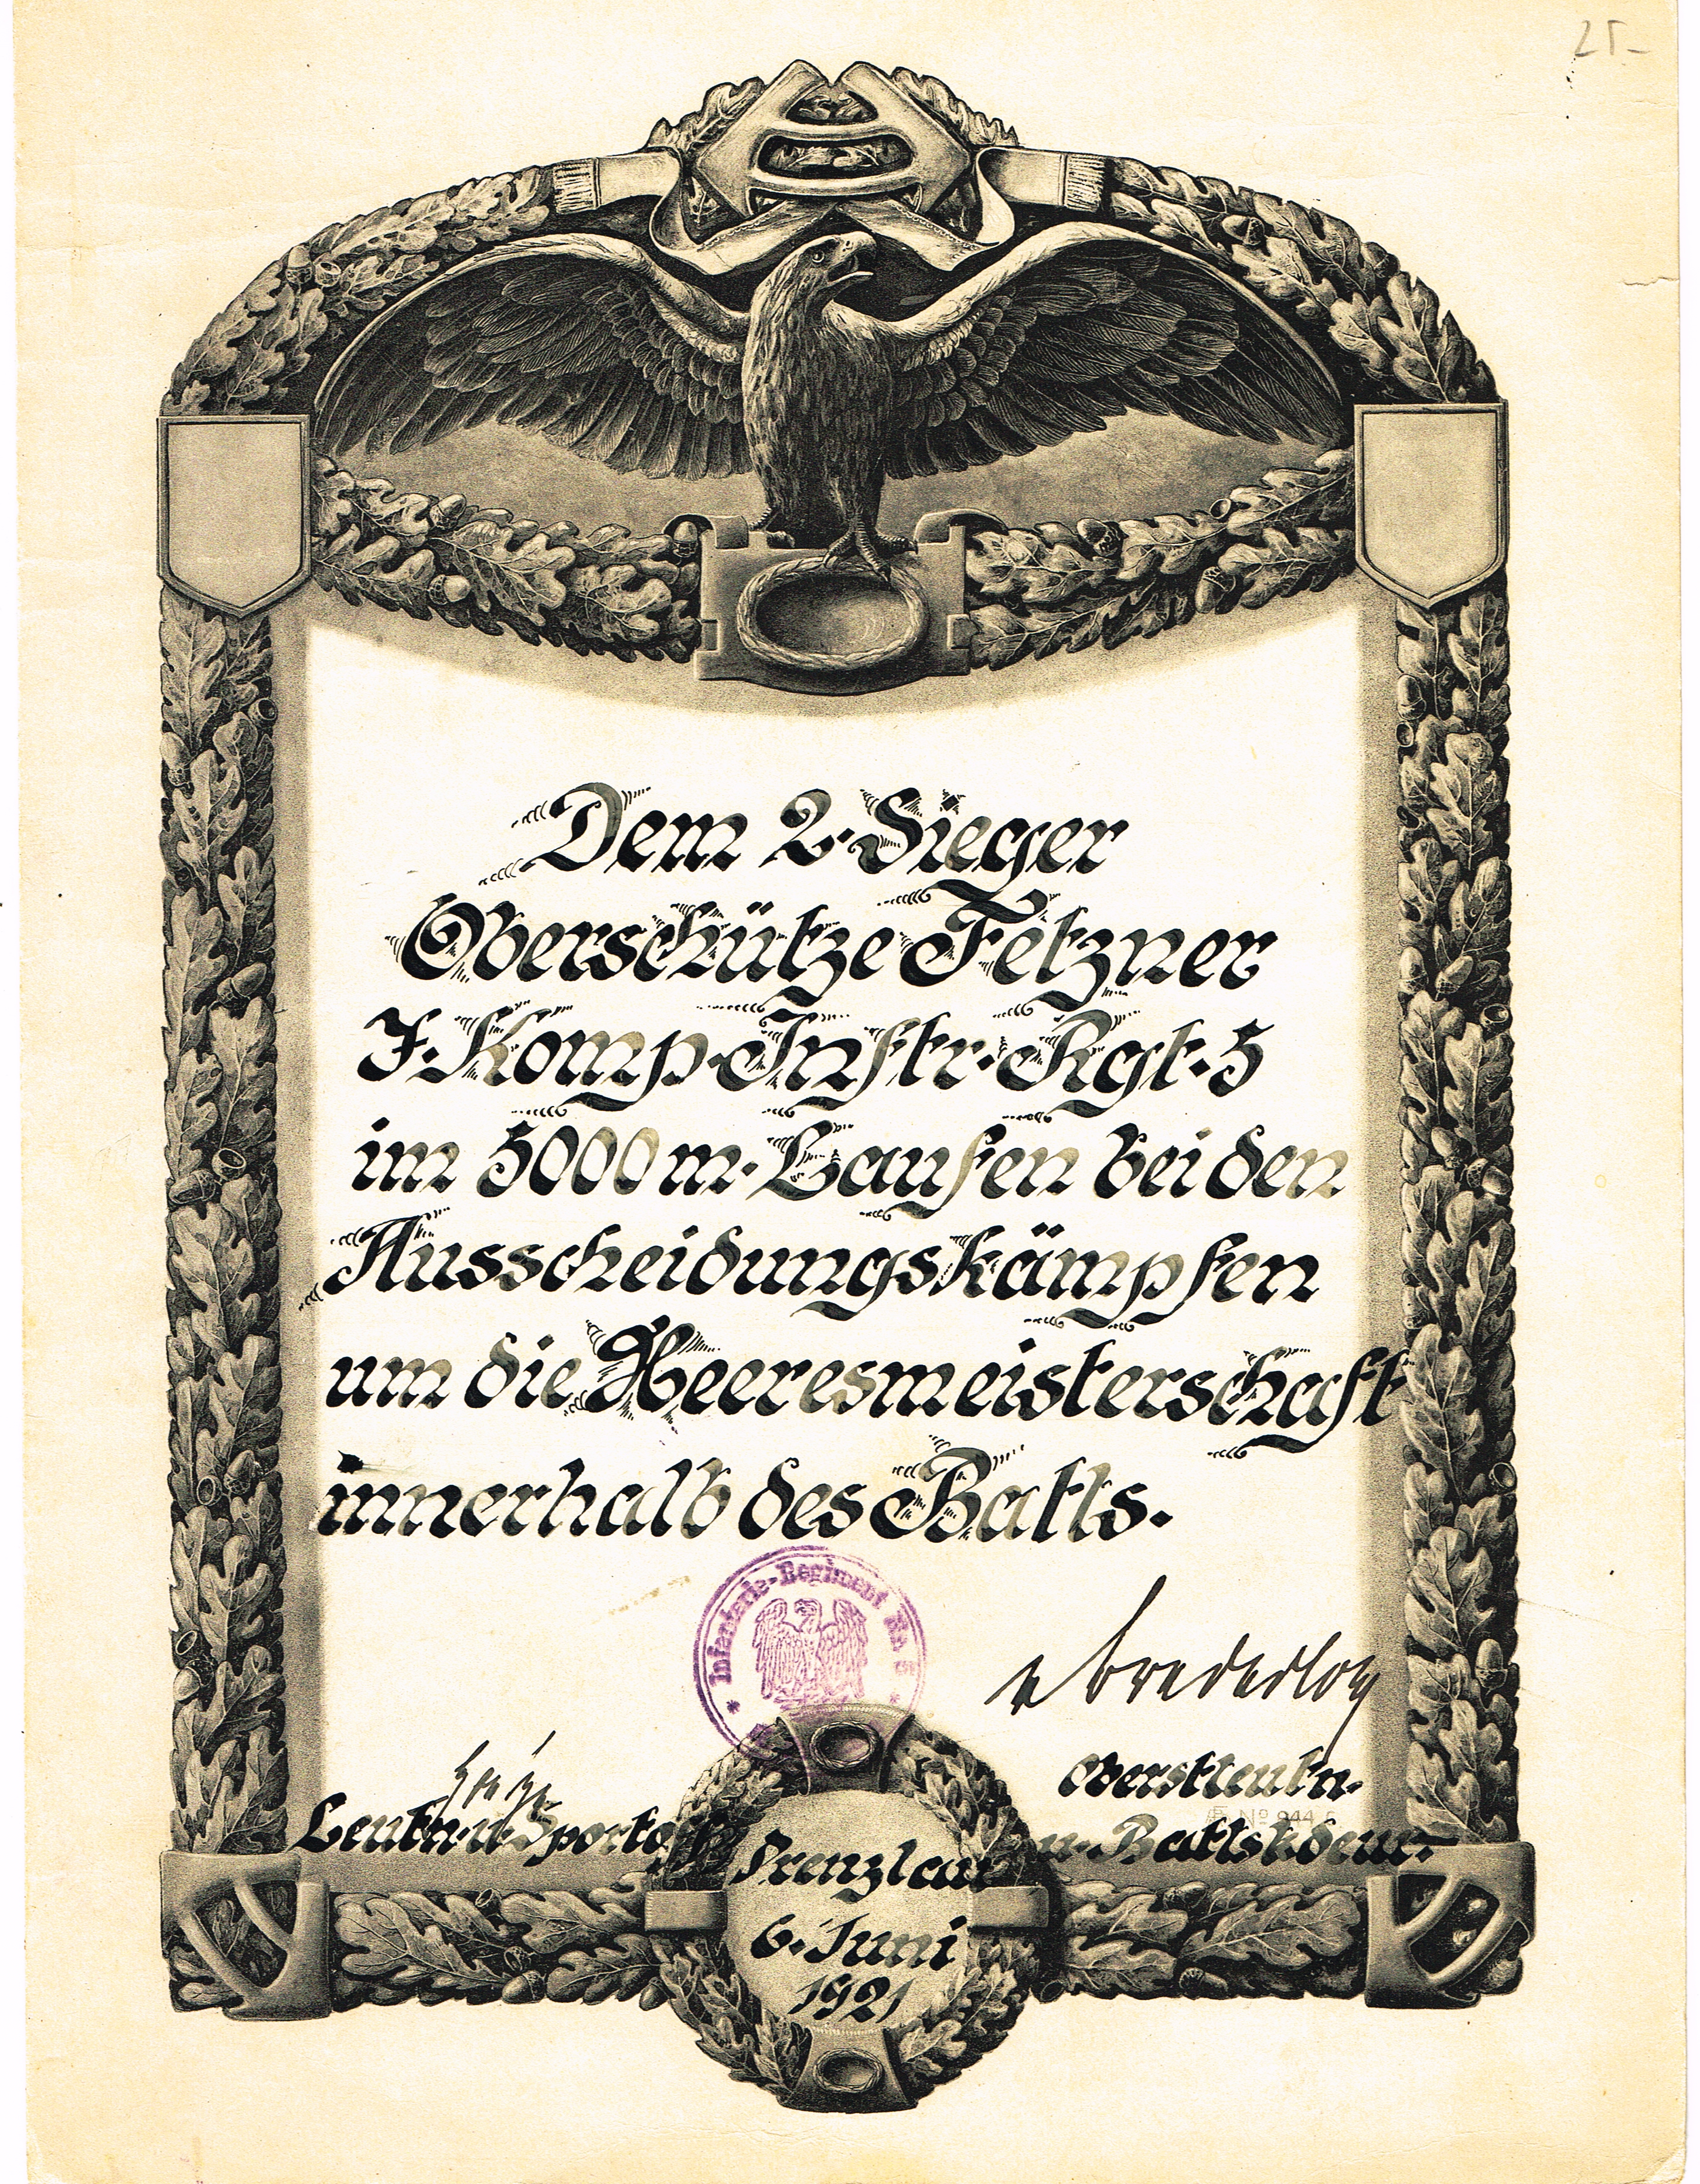 25.-
Dem 2. Sieger
Oberschütze Fetzner
7. Komp. Inftr. Rgt. 5
im 5000 m. Laufen bei den
Ausscheidungskämpfen
um die Heeresmeisterschaft
innerhalb des Batls.
* Infanterie-Regiment Nr. 5 *
Oberstleutn.
№ 944
Leutn. u. Sportoff.
u. Batlskdeur.
Prenzlau
6. Juni
1921